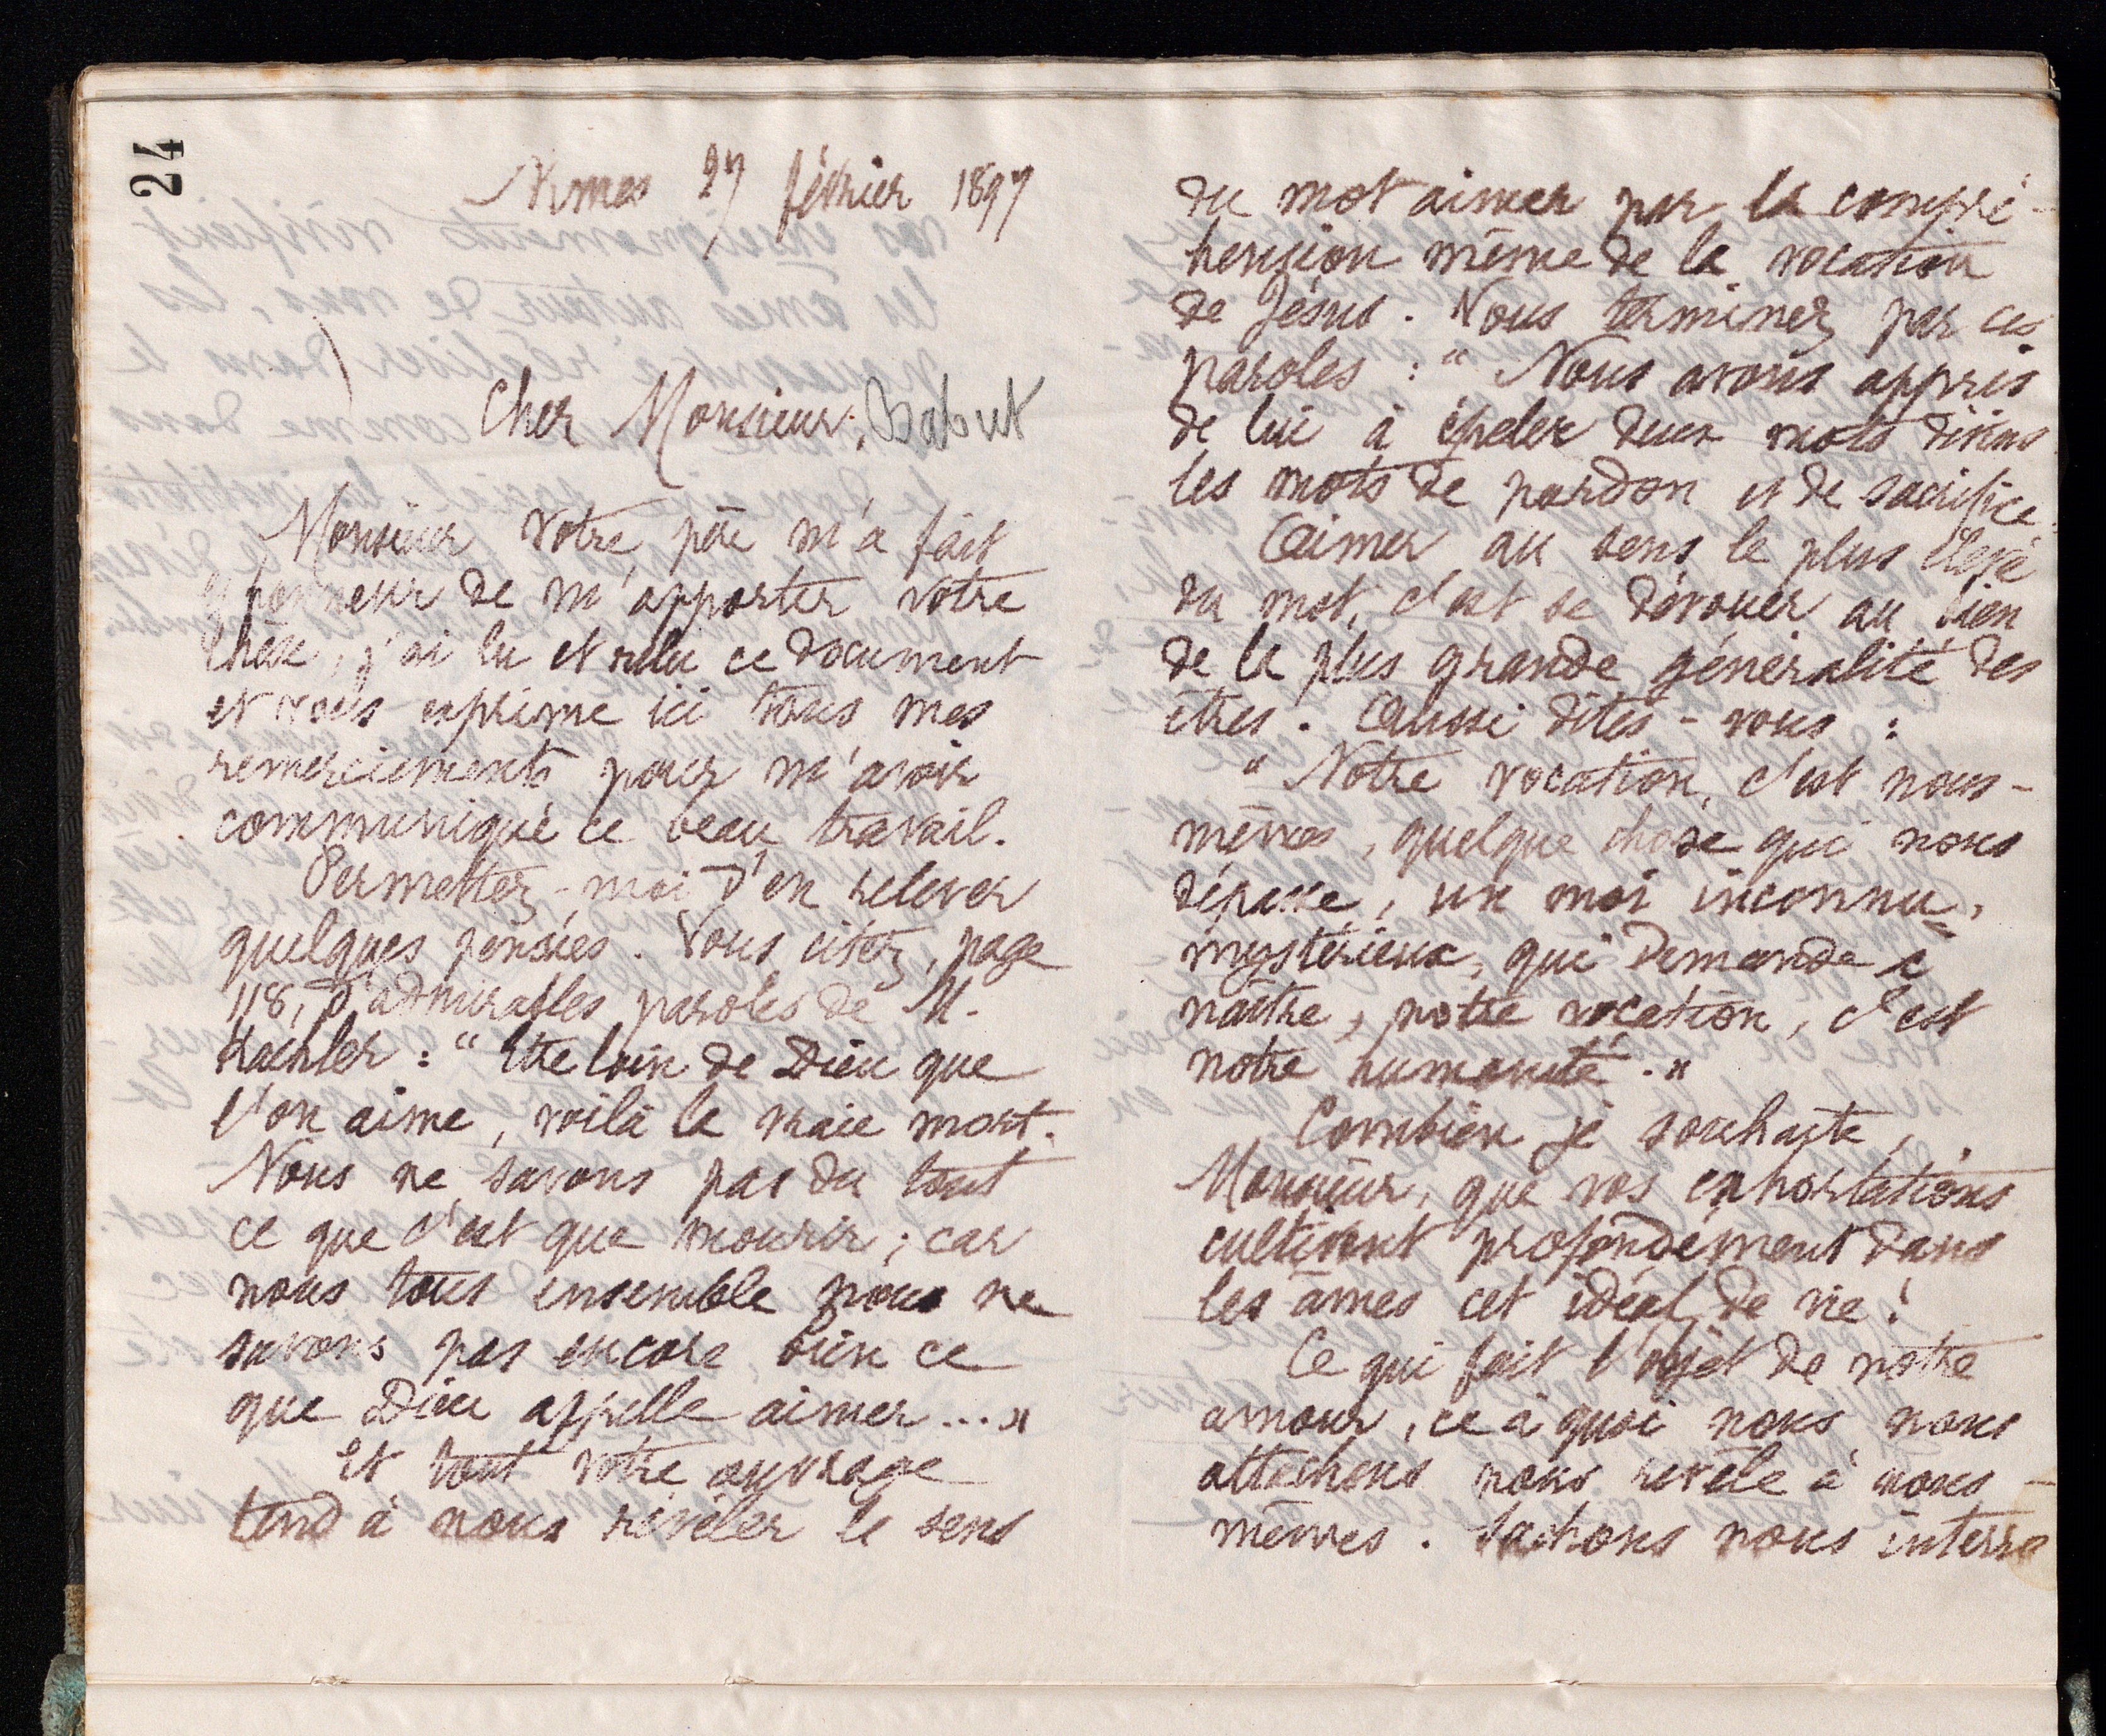 24
Nimes 27 février 1897
Cher Monsieur, Babut
Monsieur votre père m'a fait
l'honneur de m'apporter votre
thèse, j'ai lu et relu ce document
et vous exprime ici tous mes
remerciements pour m'avoir
communiqué ce beau travail.
Permettez-moi d'en relever
quelques pensées. Vous citez, page
118, d'admirables paroles de M.
Kaehler : "Etre loin de Dieu que
l'on aime, voilà la vraie mort.
Nous ne savons pas du tout
ce que c'est que mourir ; car
nous tous ensemble nous ne
savons pas encore bien ce
que Dieu appelle aimer..."
Et tout votre ouvrage
tend à nous révéler le sens
du mot aimer par la compré-
hension même de la vocation
de Jésus. Vous terminez par ces
paroles : "Nous avons appris
de lui à épeler deux mots divins
les mots de pardon et de sacrifice.
Aimer au sens le plus élevé
du mot, c'est se dévouer au bien
de la plus grande généralité des
êtres. Aussi dites-vous :
"Notre vocation, c'est nous-
mêmes, quelque chose qui nous
dépasse, un moi inconnu,
mystérieux, qui demande à
naître, notre vocation, c'est
notre humanité."
Combien je souhaite,
Monsieur, que vos exhortations
cultivent profondément dans
les âmes cet idéal de vie !
Ce qui fait l'objet de notre
amour, ce à quoi nous nous
attachons nous révèle à nous-
mêmes. Sachons nous interro